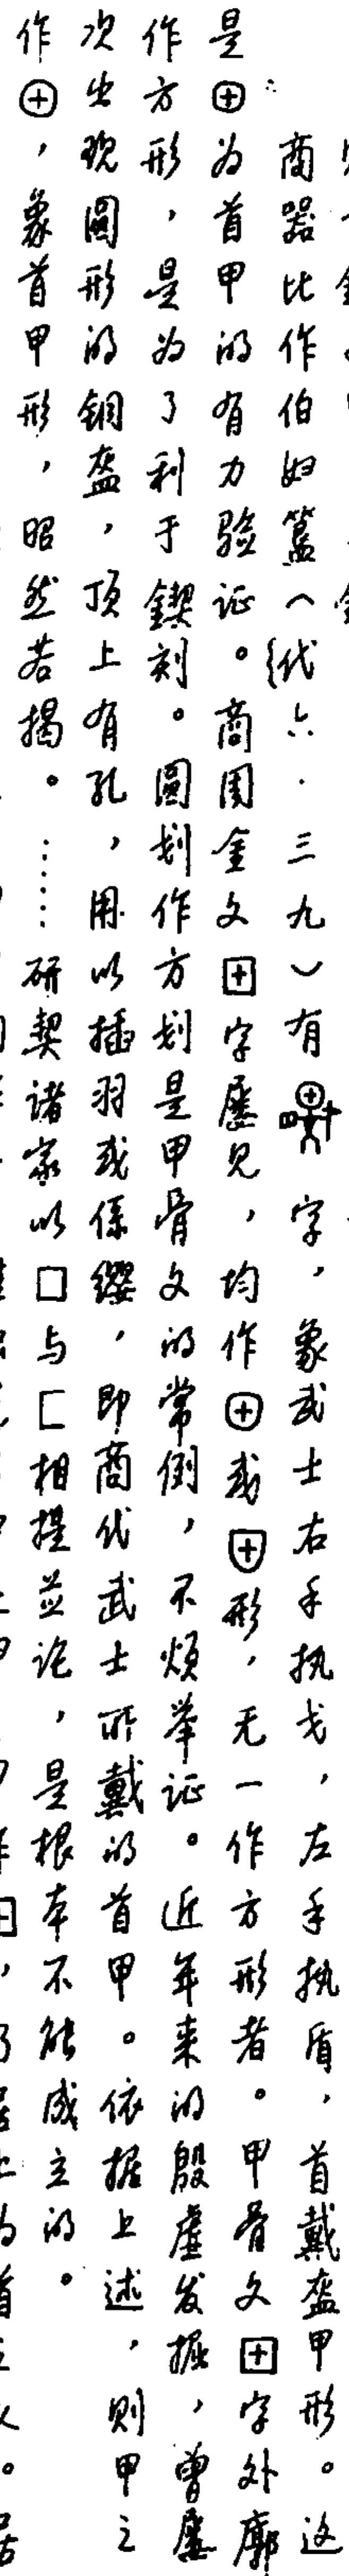 商器比作伯妇簋(代六·三九)有字,象武士右手执戈,左手执盾,首戴盔甲形。这
是⊕为首甲的有力验证。商周金文⊞字屡见,均作⊕或形,无一作方形者。甲骨文⊞字外廓
作方形,是为了利于锲刻。圓划作方划是甲骨文的常例,不烦举证。近年来的殷虚发掘,曾屡
次出现圓形的铜盔,顶上有孔,用以插羽或係缨,即商代武士所戴的首甲。依据上述,则甲之
作⊕,象首甲形,昭然若揭。……研契诸家以囗与匚相提並论,是根本不能成立的。